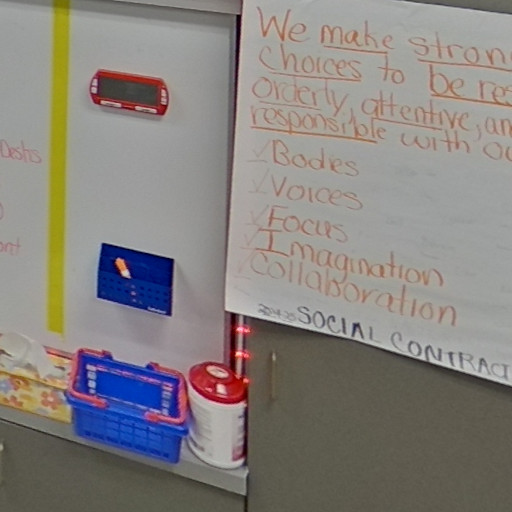 We make stron
choices to be res
orderly, attentive, an
responsible with ou
Bodies
Voices
Focus
Imagination
Collaboration
SOCIAL CONTRAC
Desks